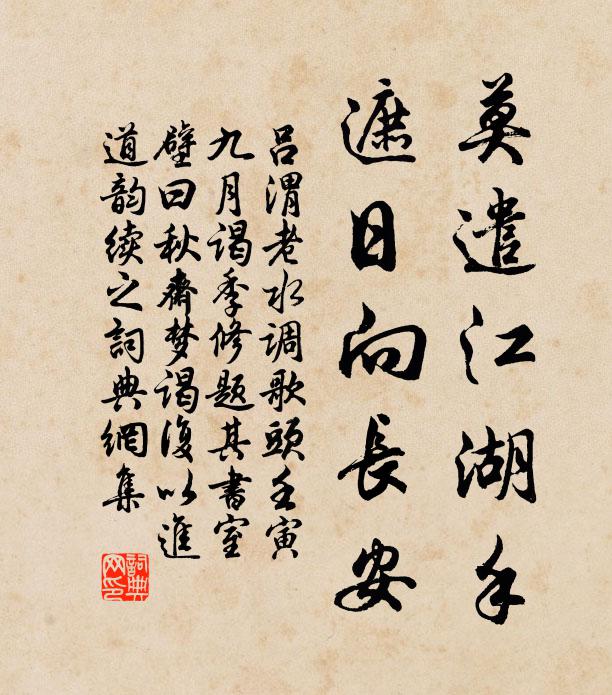 莫遣江湖手
遮日向长安
吕渭老水调歌頭壬寅
九月谒季修题其書室
壁曰秋斋梦谒復以進
道韵续之詞典網集
詞典网印